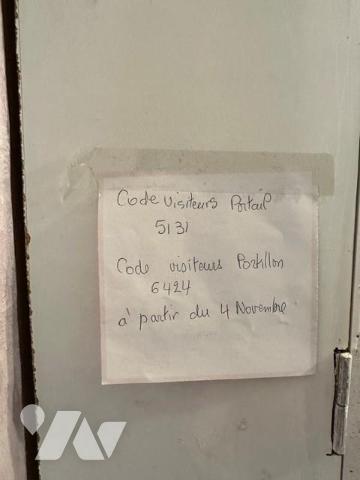 Code visiteurs Portail
5131
Code visiteurs Portillon
6424
à partir du 4 Novembre